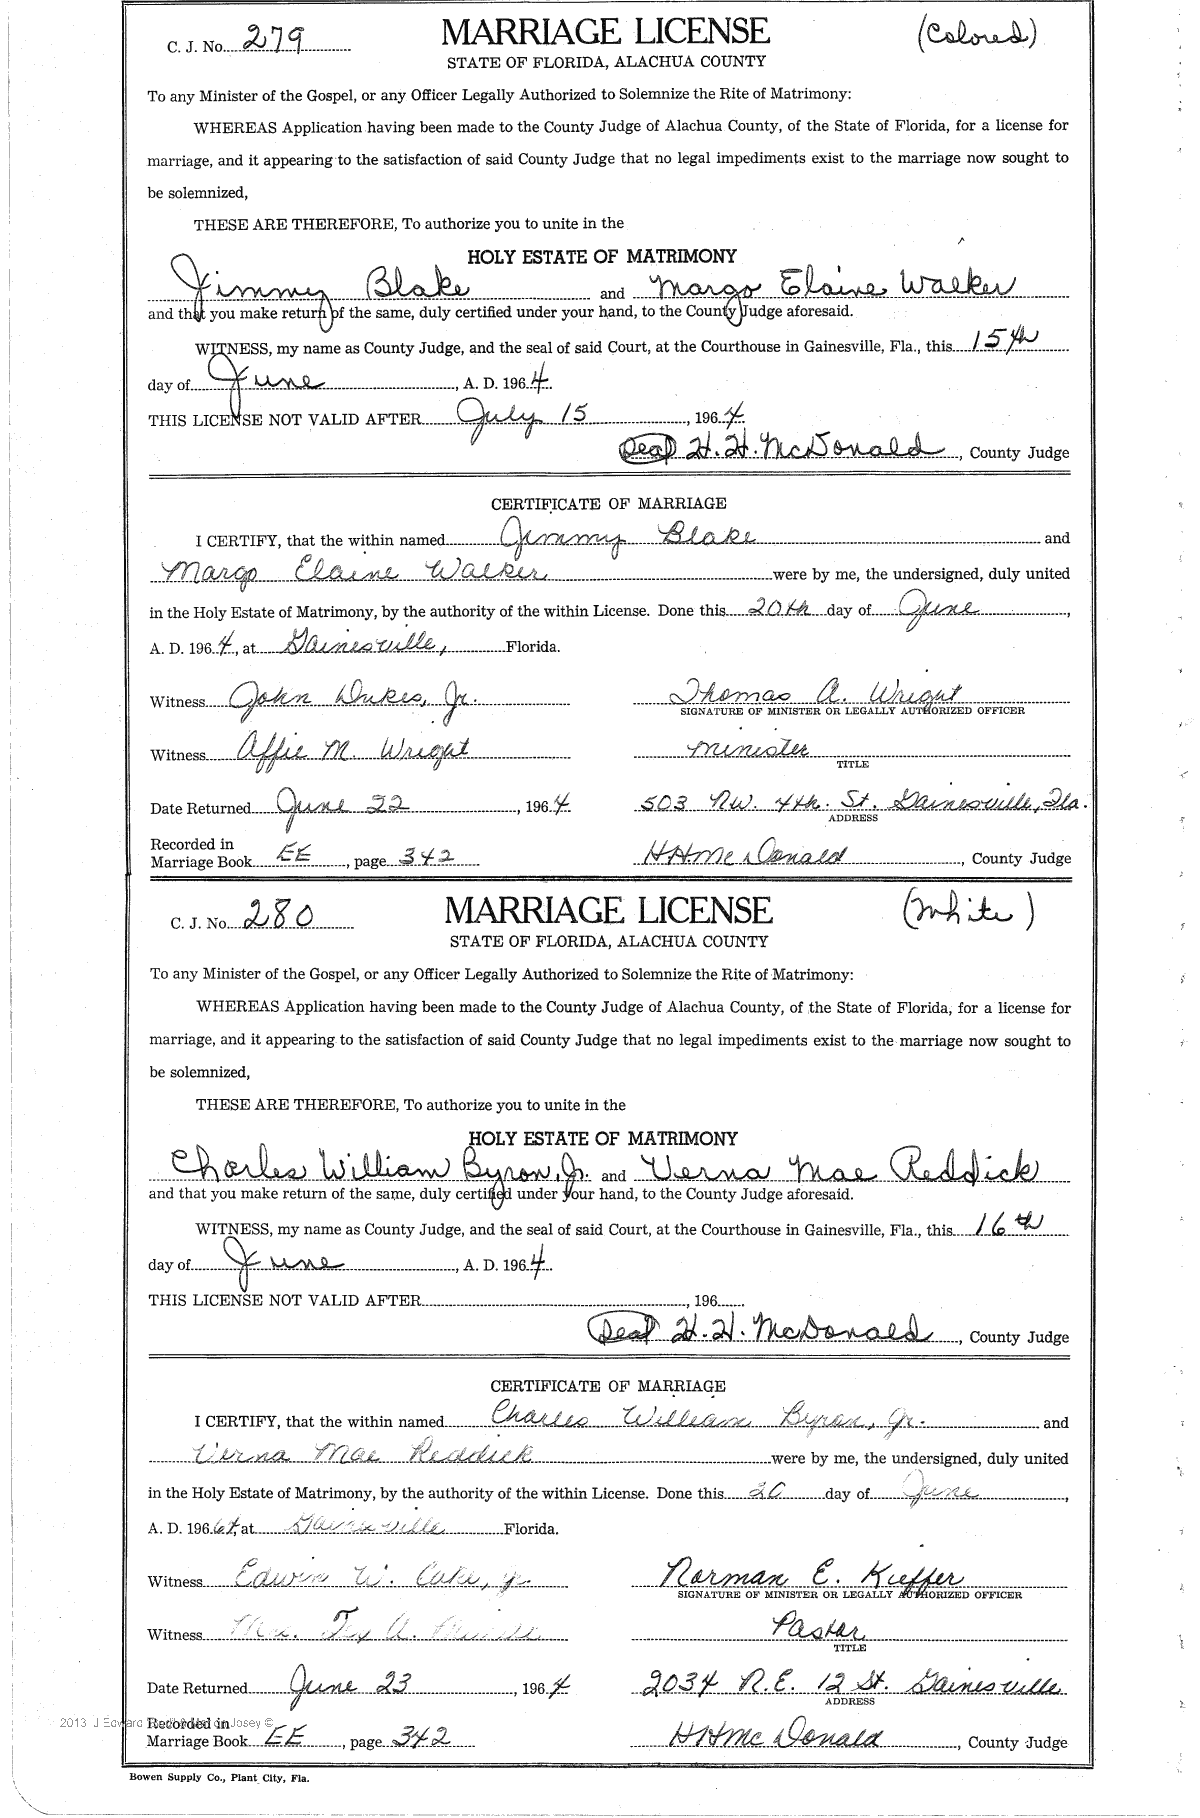 C. J. No. 279 MARRIAGE LICENSE (Colored)
STATE OF FLORIDA, ALACHUA COUNTY
To any Minister of the Gospel, or any Officer Legally Authorized to Solemnize the Rite of Matrimony:
WHEREAS Application having been made to the County Judge of Alachua County, of the State of Florida, for a license for
marriage, and it appearing to the satisfaction of said County Judge that no legal impediments exist to the marriage now sought to
be solemnized,
THESE ARE THEREFORE, To authorize you to unite in the
HOLY ESTATE OF MATRIMONY
Jimmy Blake and Margo Elaine Walker
and that you make return of the same, duly certified under your hand, to the County Judge aforesaid.
WITNESS, my name as County Judge, and the seal of said Court, at the Courthouse in Gainesville, Fla., this 15th
day of June, A. D. 1964.
THIS LICENSE NOT VALID AFTER July 15, 1964
(Seal) H. H. McDonald, County Judge
CERTIFICATE OF MARRIAGE
I CERTIFY, that the within named Jimmy Blake and
Margo Elaine Walker were by me, the undersigned, duly united
in the Holy Estate of Matrimony, by the authority of the within License. Done this 20th day of June,
A. D. 1964, at Gainesville, Florida.
Witness John Dukes, Jr. Thomas A. Wright
SIGNATURE OF MINISTER OR LEGALLY AUTHORIZED OFFICER
Witness Affie M. Wright minister
TITLE
Date Returned June 22, 1964 503 NW. 4th. St. Gainesville, Fla.
ADDRESS
Recorded in
Marriage Book EE, page 342 HHMcDonald, County Judge
C. J. No. 280 MARRIAGE LICENSE (White)
STATE OF FLORIDA, ALACHUA COUNTY
To any Minister of the Gospel, or any Officer Legally Authorized to Solemnize the Rite of Matrimony:
WHEREAS Application having been made to the County Judge of Alachua County, of the State of Florida, for a license for
marriage, and it appearing to the satisfaction of said County Judge that no legal impediments exist to the marriage now sought to
be solemnized,
THESE ARE THEREFORE, To authorize you to unite in the
HOLY ESTATE OF MATRIMONY
Charles William Byron, Jr. and Verna Mae Reddick
and that you make return of the same, duly certified under your hand, to the County Judge aforesaid.
WITNESS, my name as County Judge, and the seal of said Court, at the Courthouse in Gainesville, Fla., this 16th
day of June, A. D. 1964.
THIS LICENSE NOT VALID AFTER, 196
(Seal) H. H. McDonald, County Judge
CERTIFICATE OF MARRIAGE
I CERTIFY, that the within named Charles William Byron, Jr. and
Verna Mae Reddick were by me, the undersigned, duly united
in the Holy Estate of Matrimony, by the authority of the within License. Done this 20 day of June,
A. D. 19664, at Gainesville Florida.
Witness Edwin W. Cake, Jr. Norman E. Kieffer
SIGNATURE OF MINISTER OR LEGALLY AUTHORIZED OFFICER
Witness Mrs. A. Pastor
TITLE
Date Returned June 23, 1964 2034 N.E. 12 St. Gainesville
ADDRESS
2013 J Josey ©
Recorded in
Marriage Book EE, page 342 HHMcDonald, County Judge
Bowen Supply Co., Plant City, Fla.